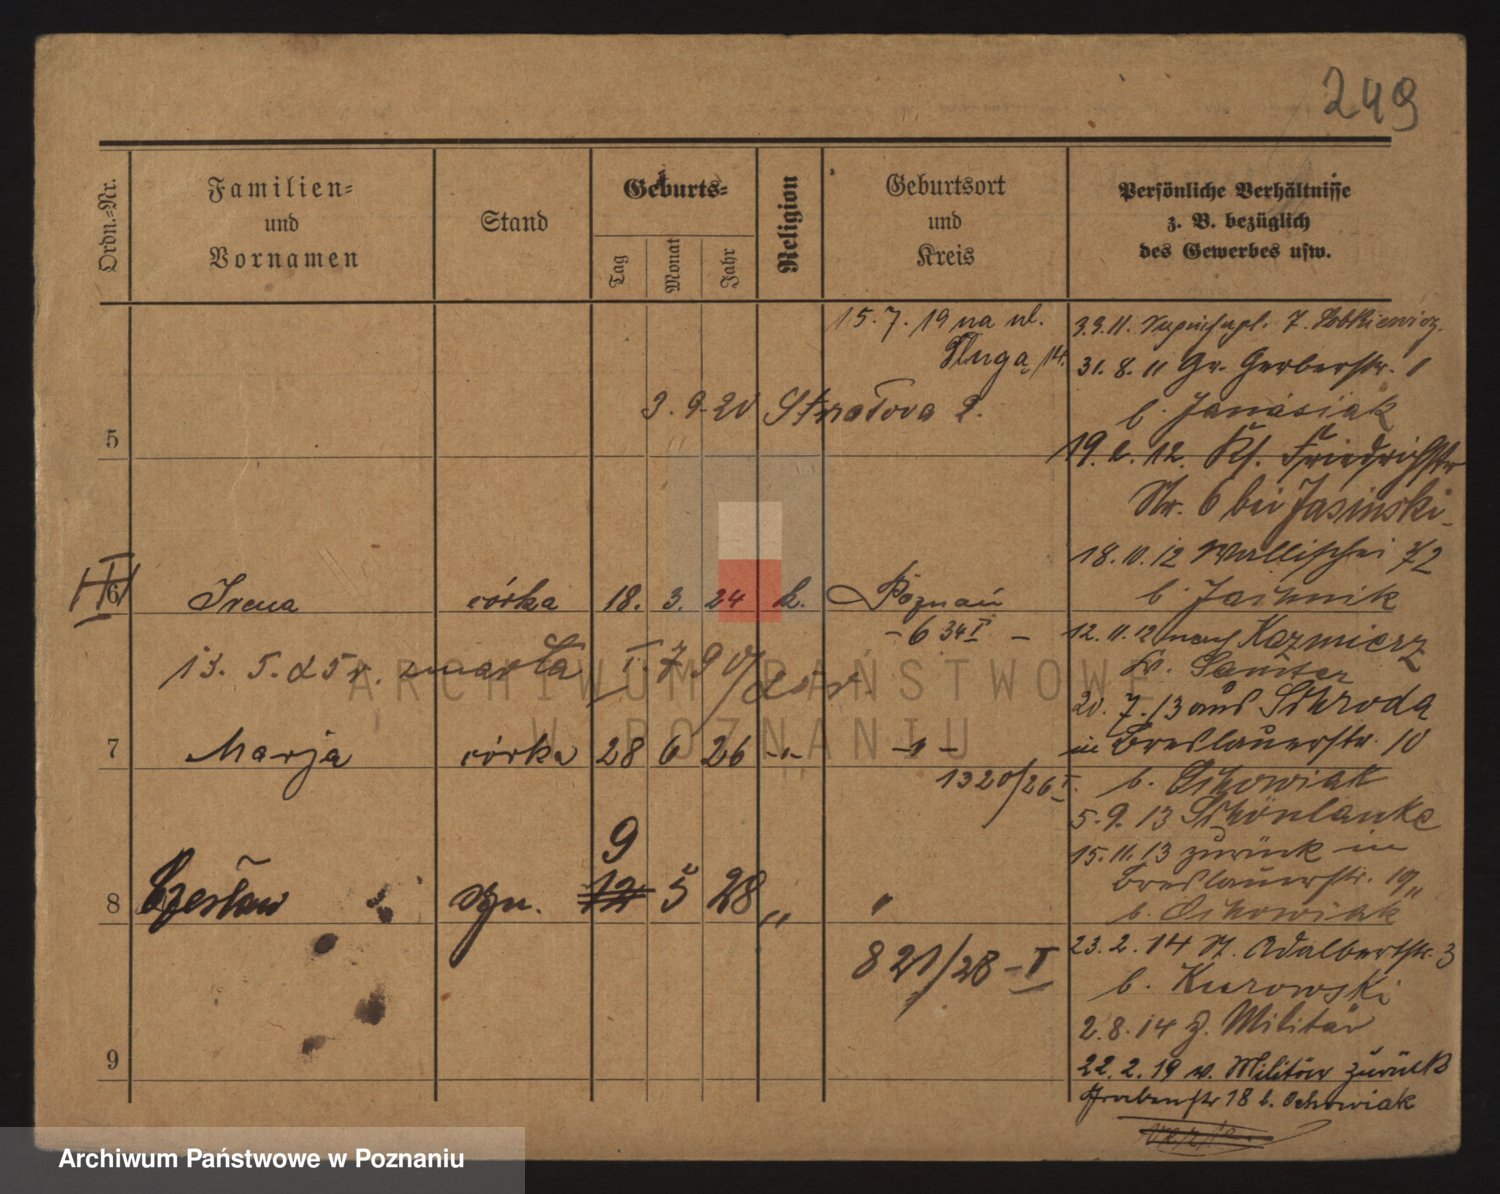 249
Ordn.-Nr.
Familien-
und
Vornamen
Stand
Geburts-
Tag
Monat
Jahr
Religion
Geburtsort
und
Kreis
Persönliche Verhältnisse
z. B. bezüglich
des Gewerbes usw.
15. 7. 19 na ul.
Długą 14.
3. 9. 20 Strzałowa 2.
5
6 Irena córka 18. 3. 24 k. Poznań
6 34 I
13. 5. 25 r. zmarła
7 Marja córka 28 6 26 -"- -"-
1320/26 I.
9
8 Czesław syn. 12 5 28 " "
821/28 - I
9
3.3.11. 7. Sobkiewicz.
31. 8. 11 Gr. Gerberstr. 1
b. Janasiak
19. 2. 12. Ks. Friedrichstr
Nr. 6 bei Jasinski
18. 10. 12 Wallischei 72
b. Jachnik
12. 11. 12 nach Kazmierz
Kr. Samter
20. 7. 13 aus Schroda
in Breslauerstr. 10
b. Ochowiak
5. 9. 13 Schönlanke
15. 11. 13 zurück in
Breslauerstr. 19
b. Ochowiak
23. 2. 14 St. Adalbertstr. 3
b. Kurowski
2. 8. 14 z. Militär
22. 2. 19 v. Militär zurück
Grabenstr 18 b. Ochowiak
ARCHIWUM PAŃSTWOWE
W POZNANIU
Archiwum Państwowe w Poznaniu